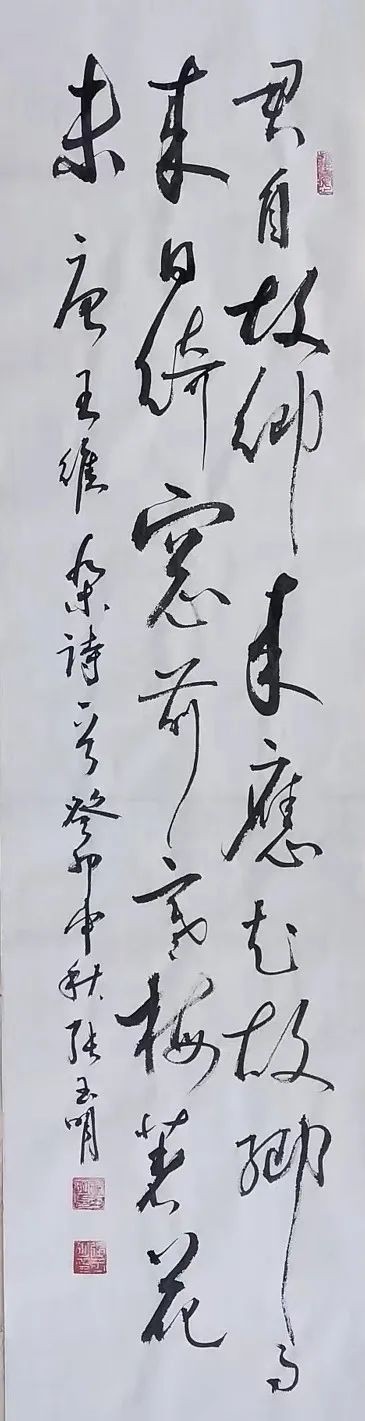 君自故鄉來應知故鄉事
來日綺窻前寒梅著花
未 唐王維雜詩一首癸卯中秋張玉明